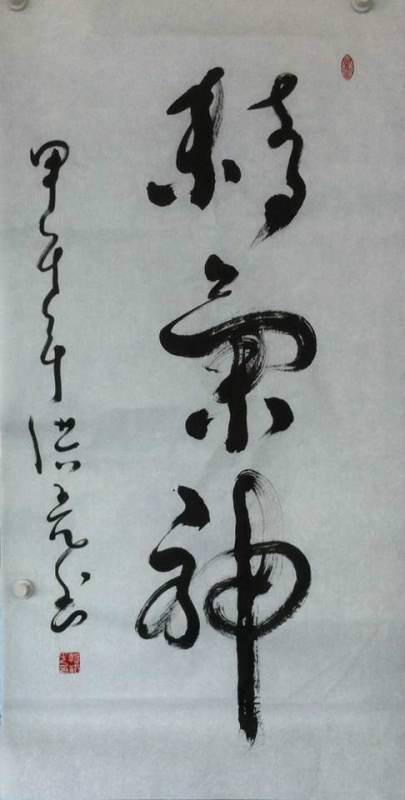 精氣神
甲午年洪亮书